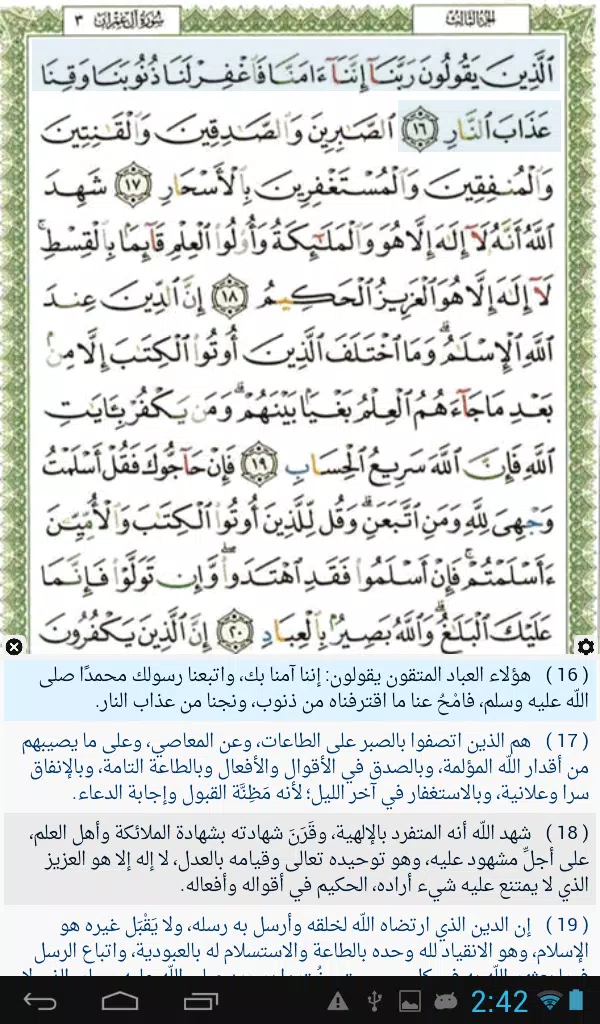 الجزء الثالث
سورة آل عمران ٣
الَّذِينَ يَقُولُونَ رَبَّنَآ إِنَّنَآ ءَامَنَّا فَاغْفِرْ لَنَا ذُنُوبَنَا وَقِنَا
عَذَابَ النَّارِ ١٦ الصَّٰبِرِينَ وَالصَّٰدِقِينَ وَالْقَٰنِتِينَ
وَالْمُنفِقِينَ وَالْمُسْتَغْفِرِينَ بِالْأَسْحَارِ ١٧ شَهِدَ
اللَّهُ أَنَّهُ لَآ إِلَٰهَ إِلَّا هُوَ وَالْمَلَٰٓئِكَةُ وَأُو۟لُوا۟ الْعِلْمِ قَآئِمًۢا بِالْقِسْطِ ۚ
لَآ إِلَٰهَ إِلَّا هُوَ الْعَزِيزُ الْحَكِيمُ ١٨ إِنَّ الدِّينَ عِندَ
اللَّهِ الْإِسْلَٰمُ ۗ وَمَا اخْتَلَفَ الَّذِينَ أُوتُوا۟ الْكِتَٰبَ إِلَّا مِنۢ
بَعْدِ مَا جَآءَهُمُ الْعِلْمُ بَغْيًۢا بَيْنَهُمْ ۗ وَمَن يَكْفُرْ بِـَٔايَٰتِ
اللَّهِ فَإِنَّ اللَّهَ سَرِيعُ الْحِسَابِ ١٩ فَإِنْ حَآجُّوكَ فَقُلْ أَسْلَمْتُ
وَجْهِىَ لِلَّهِ وَمَنِ اتَّبَعَنِ ۗ وَقُل لِّلَّذِينَ أُوتُوا۟ الْكِتَٰبَ وَالْأُمِّيِّـۧنَ
ءَأَسْلَمْتُمْ ۚ فَإِنْ أَسْلَمُوا۟ فَقَدِ اهْتَدَوا۟ ۖ وَّإِن تَوَلَّوْا۟ فَإِنَّمَا
عَلَيْكَ الْبَلَٰغُ ۗ وَاللَّهُ بَصِيرٌۢ بِالْعِبَادِ ٢٠ إِنَّ الَّذِينَ يَكْفُرُونَ
(16) هؤلاء العباد المتقون يقولون: إننا آمنا بك، واتبعنا رسولك محمدًا صلى
الله عليه وسلم، فامْحُ عنا ما اقترفناه من ذنوب، ونجنا من عذاب النار.
(17) هم الذين اتصفوا بالصبر على الطاعات، وعن المعاصي، وعلى ما يصيبهم
من أقدار الله المؤلمة، وبالصدق في الأقوال والأفعال وبالطاعة التامة، وبالإنفاق
سرا وعلانية، وبالاستغفار في آخر الليل؛ لأنه مَظِنَّة القبول وإجابة الدعاء.
(18) شهد الله أنه المتفرد بالإلهية، وقَرَنَ شهادته بشهادة الملائكة وأهل العلم،
على أجلِّ مشهود عليه، وهو توحيده تعالى وقيامه بالعدل، لا إله إلا هو العزيز
الذي لا يمتنع عليه شيء أراده، الحكيم في أقواله وأفعاله.
(19) إن الدين الذي ارتضاه الله لخلقه وأرسل به رسله، ولا يَقْبَل غيره هو
الإسلام، وهو الانقياد لله وحده بالطاعة والاستسلام له بالعبودية، واتباع الرسل
2:42